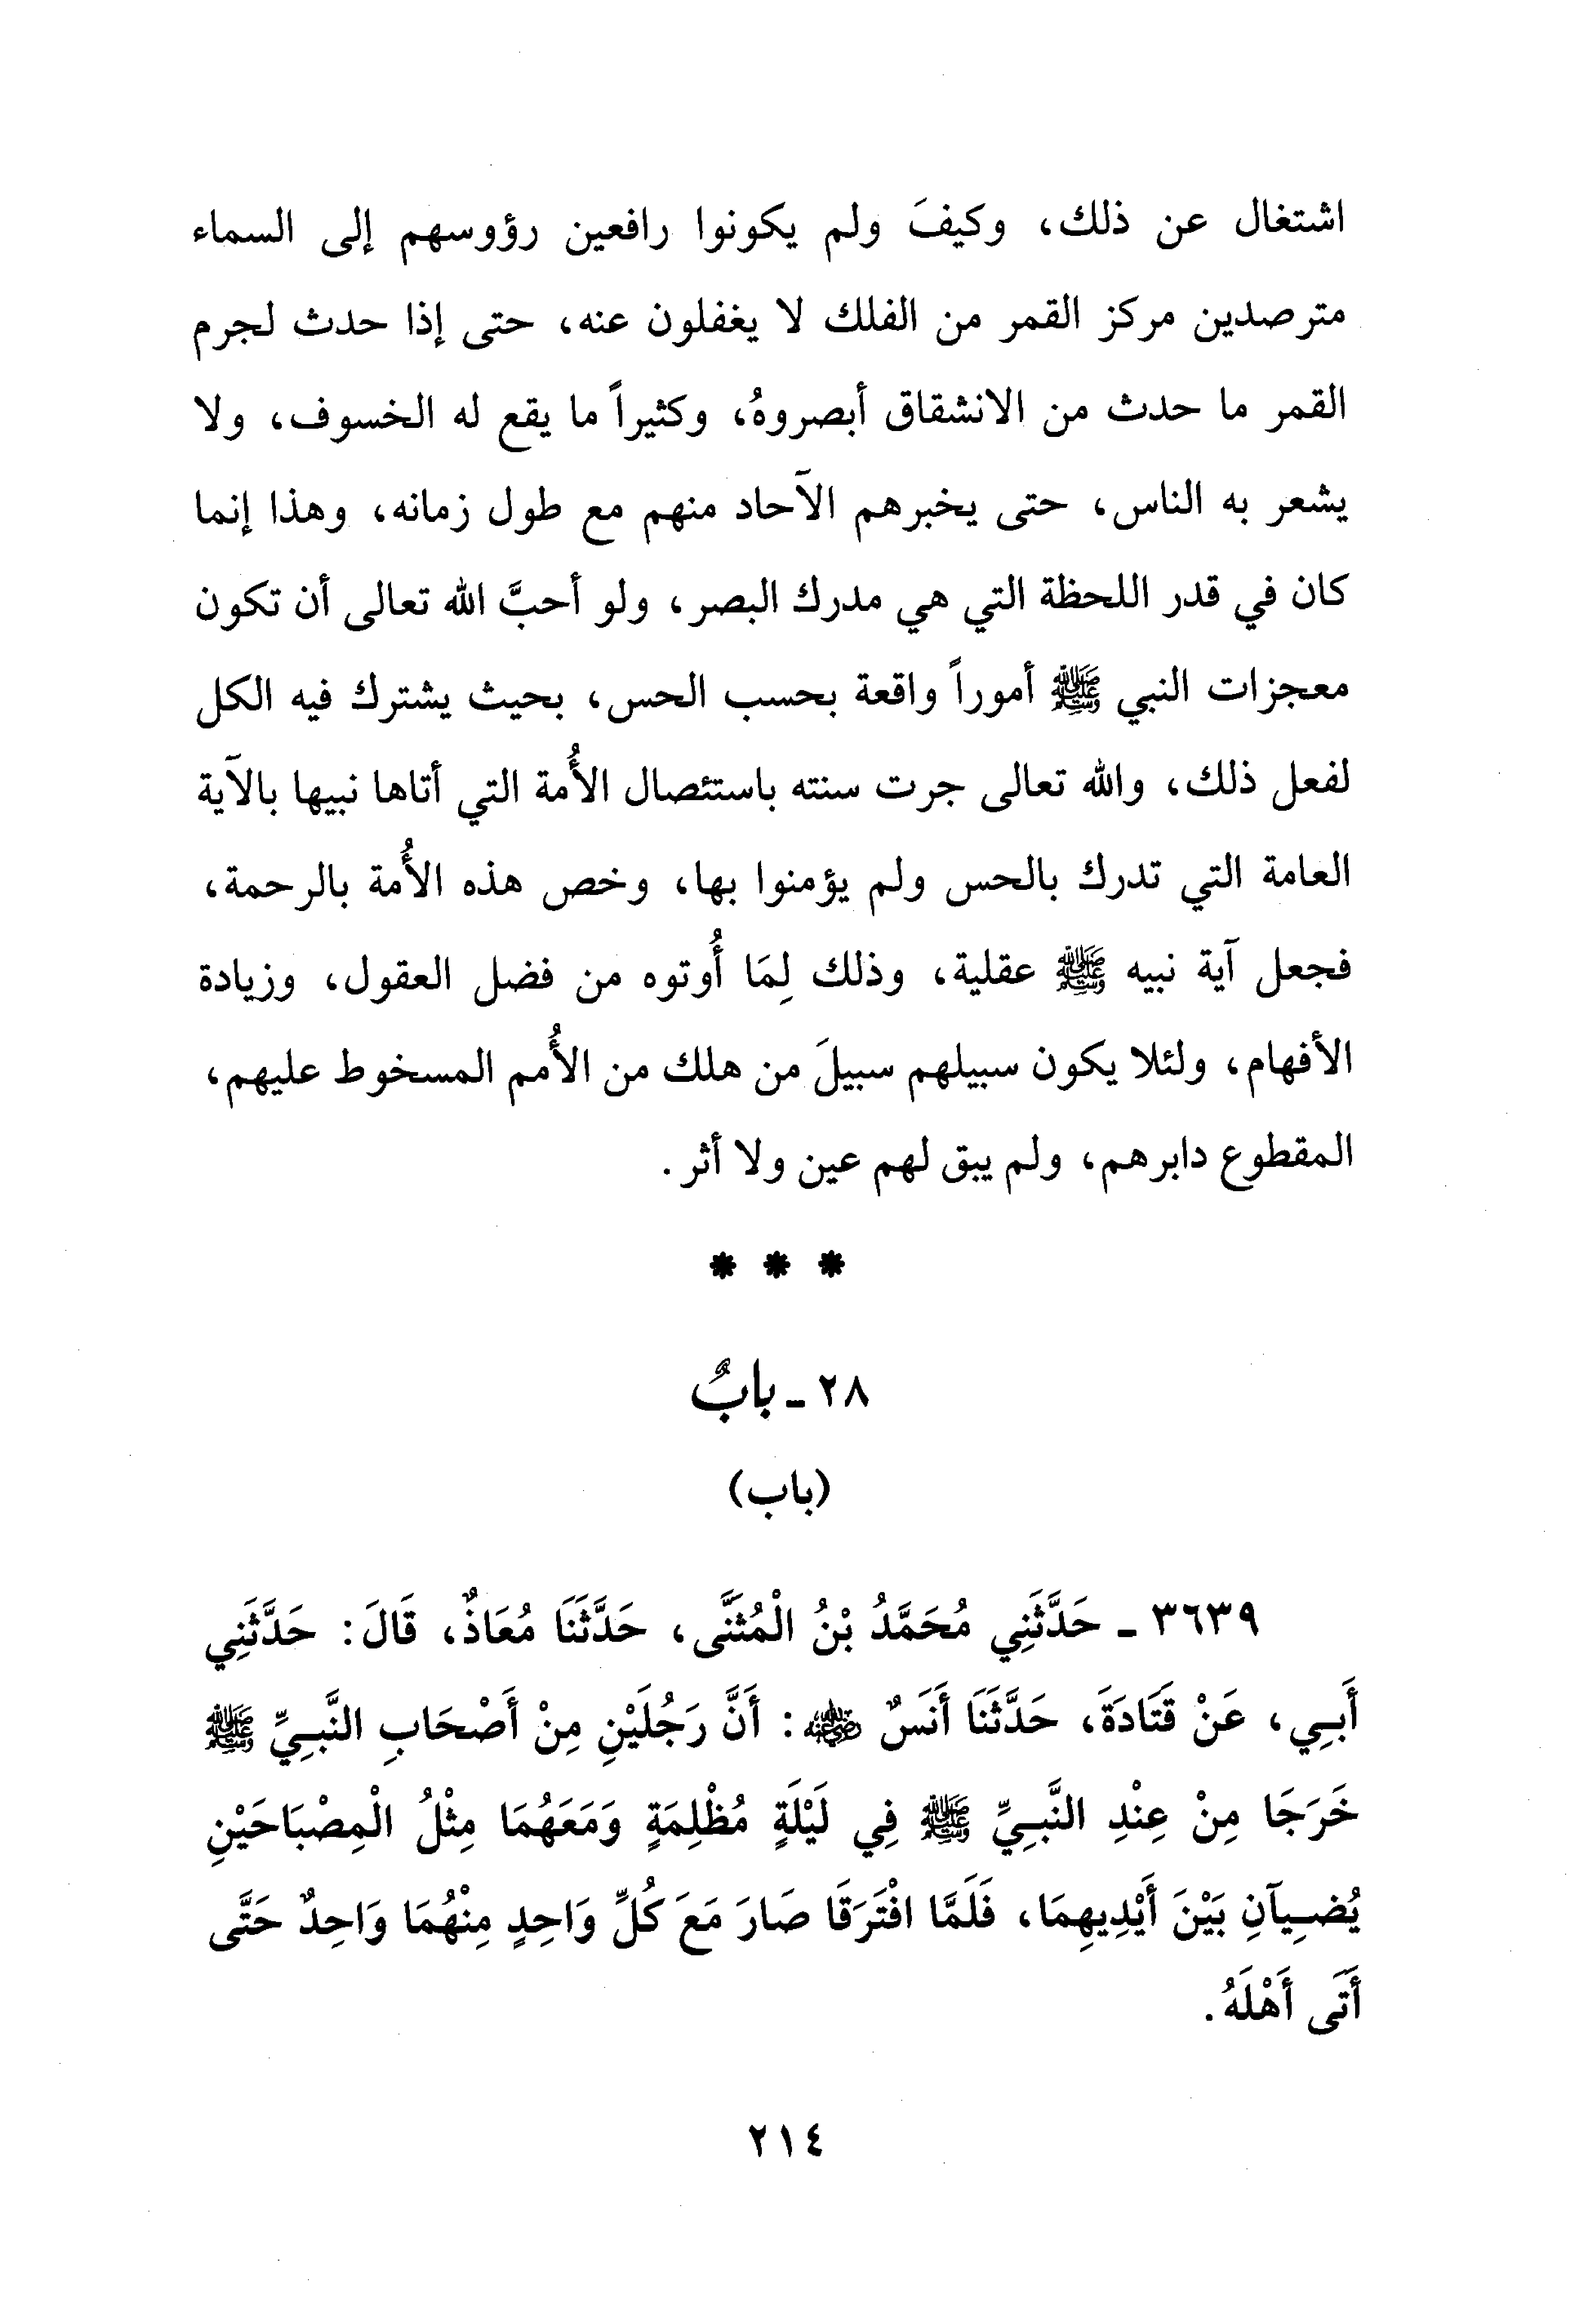 اشتغال عن ذلك، وكيفَ ولم يكونوا رافعين رؤوسهم إلى السماء
مترصدين مركز القمر من الفلك لا يغفلون عنه، حتى إذا حدث لجرم
القمر ما حدث من الانشقاق أبصروهُ، وكثيراً ما يقع له الخسوف، ولا
يشعر به الناس، حتى يخبرهم الآحاد منهم مع طول زمانه، وهذا إنما
كان في قدر اللحظة التي هي مدرك البصر، ولو أحبَّ الله تعالى أن تكون
معجزات النبي ﷺ أموراً واقعة بحسب الحس، بحيث يشترك فيه الكل
لفعل ذلك، والله تعالى جرت سنته باستئصال الأُمة التي أتاها نبيها بالآية
العامة التي تدرك بالحس ولم يؤمنوا بها، وخص هذه الأُمة بالرحمة،
فجعل آية نبيه ﷺ عقلية، وذلك لِمَا أُوتوه من فضل العقول، وزيادة
الأفهام، ولئلا يكون سبيلهم سبيلَ من هلك من الأُمم المسخوط عليهم،
المقطوع دابرهم، ولم يبق لهم عين ولا أثر.
* * *
٢٨ - بابٌ
(باب)
٣٦٣٩ - حَدَّثَنِي مُحَمَّدُ بْنُ الْمُثَنَّى، حَدَّثَنَا مُعَاذٌ، قَالَ: حَدَّثَنِي
أَبِي، عَنْ قَتَادَةَ، حَدَّثَنَا أَنَسٌ رضي الله عنه: أَنَّ رَجُلَيْنِ مِنْ أَصْحَابِ النَّبِيِّ ﷺ
خَرَجَا مِنْ عِنْدِ النَّبِيِّ ﷺ فِي لَيْلَةٍ مُظْلِمَةٍ وَمَعَهُمَا مِثْلُ الْمِصْبَاحَيْنِ
يُضِيآنِ بَيْنَ أَيْدِيهِمَا، فَلَمَّا افْتَرَقَا صَارَ مَعَ كُلِّ وَاحِدٍ مِنْهُمَا وَاحِدٌ حَتَّى
أَتَى أَهْلَهُ.
٢١٤